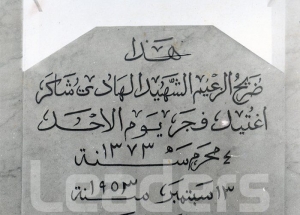 هذا
ضريح الزعيم الشهيد الهادي شاكر
اغتيل فجر يوم الاحد
٤ محرم سنة ١٣٧٣
١٣ سبتمبر سنة ١٩٥٣
Leaders